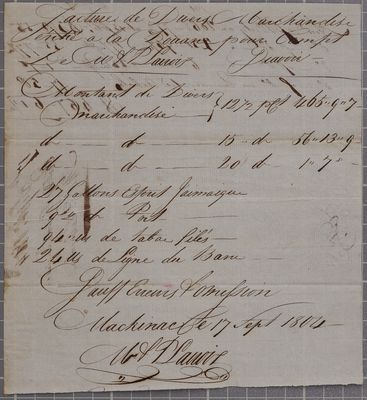 Factures de Divers Marchandise
a la Douane pour Compt
De
Montant de Divers
marchandise } 12½ pct 465"9"7
do — do — 15 " do 56"13"9
do — do — 20 do 1"7"
27 Gallons Esprit Jamaique
9 do de Port
94 lbs de tabac filés
24 lbs de Ligne du Banc
Sauff Erreurs & Omission
Mackinac le 17 Sept 1804